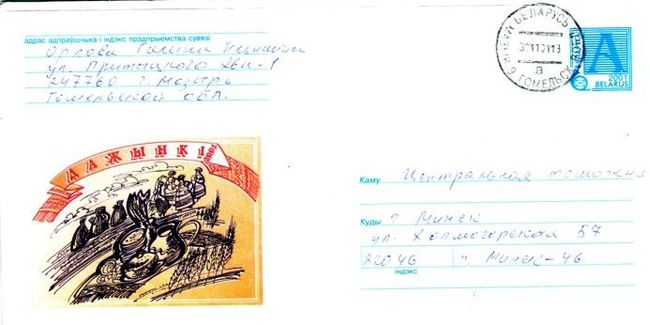 адрас адпраўшчыка і індэкс прадпрыемства сувязі
Орлова Галина
ул. Притыцкого 2ва-1
247760 г. Мозырь
Гомельской обл.
ПОШТА БЕЛАРУСЬ
а
ГОМЕЛЬСК
А
2001
BELARUS
ДАЖЫНКІ
Каму Центральная таможня
Куды г. Минск
ул. Холмогорская 57
220046 г. Минск-46
індэкс